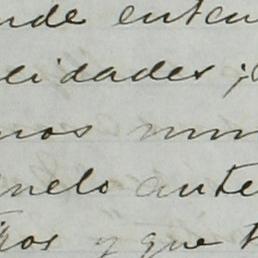 nde entcu
lidades ;
nos mu
nelo ante
tros y que t